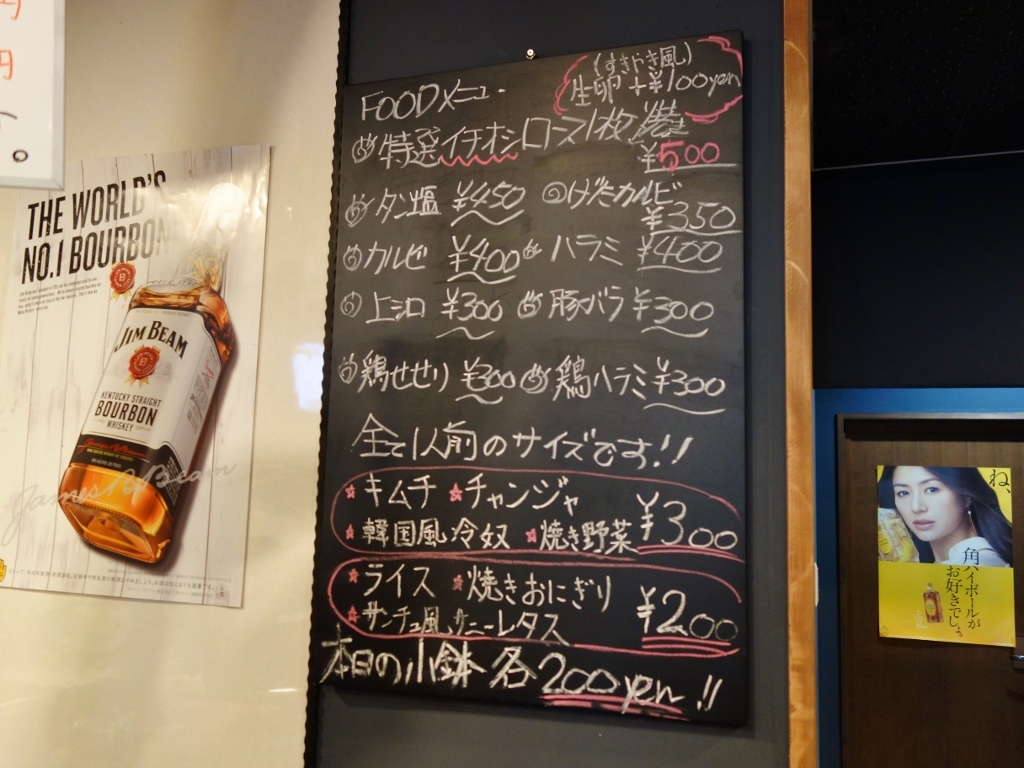 円
円
THE WORLD'S
NO.1 BOURBON
JIM BEAM
KENTUCKY STRAIGHT
BOURBON
WHISKEY
James B. Beam
FOODメニュー
(すきやき風)
生卵 +¥100yen
特選イチオシロース1枚焼き
¥500
タン塩 ¥450 げたカルビ
¥350
カルビ ¥400 ハラミ ¥400
上シロ ¥300 豚バラ ¥300
鶏せせり ¥300 鶏ハラミ ¥300
全て1人前のサイズです!!
★キムチ ★チャンジャ
★韓国風冷奴 ★焼き野菜 ¥300
★ライス ★焼きおにぎり
★サンチュ風サニーレタス ¥200
本日の小鉢 各200yen!!
ね、
角ハイボールが
お好きでしょ。